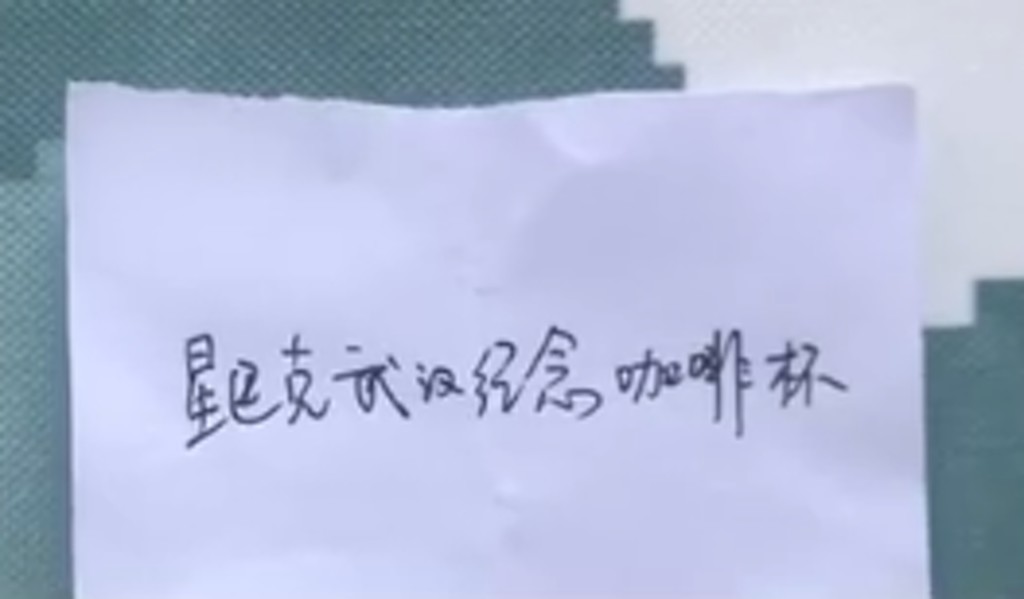 星巴克武汉纪念咖啡杯